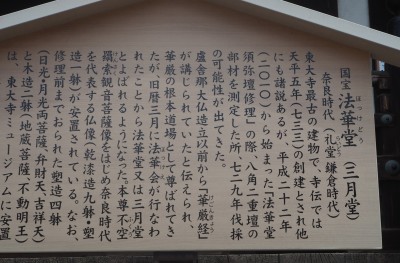 国宝 法華堂（三月堂）
ほっけどう
奈良時代（礼堂 鎌倉時代）
東大寺最古の建物で、寺伝では
天平五年（七三三）の創建とされ他
にも諸説あるが、平成二十二年
（二〇一〇）から始まった「法華堂
須弥壇修理」の際、八角二重壇の
部材を測定した所、七二九年伐採
の可能性が出てきた。
盧舎那大仏造立以前から「華厳経」
けごんきょう
が講じられていたと伝えられ、
華厳の根本道場として尊ばれてき
たが、旧暦三月に法華会が行なわ
れたことから法華堂又は三月堂
とよばれるようになった。本尊不空
羂索観音菩薩像をはじめ奈良時代
を代表する仏像（乾漆造九躰・塑
造一躰）が安置されている。なお、
修理前までおられた塑造四躰
（日光・月光両菩薩、弁財天、吉祥天）
と木造二躰（地蔵菩薩、不動明王）
は、東大寺ミュージアムに安置